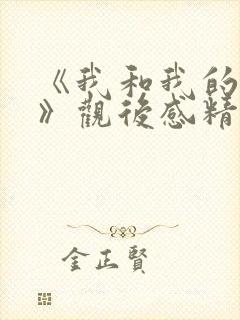 《我和我的
》觀後感精
金正賢